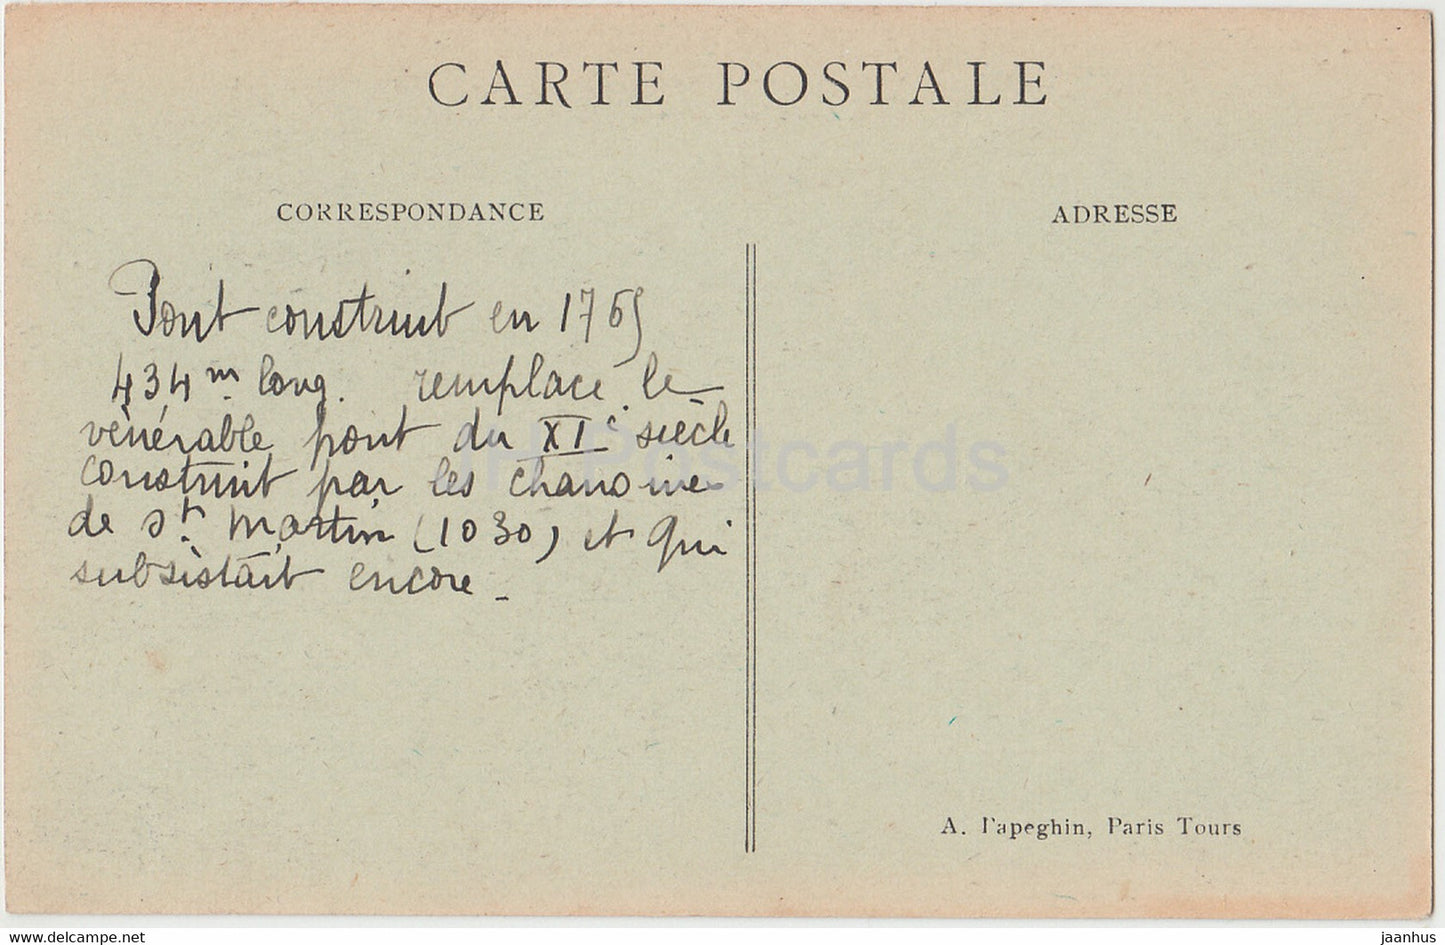 CARTE POSTALE
CORRESPONDANCE
ADRESSE
Pont construit en 1765
434 m. long. remplace le
vénérable pont du XIe siècle
construit par les chanoines
de St. Martin (1030) et qui
subsistait encore.
A. Papeghin, Paris Tours
HPostcards
jaanhus
www.delcampe.net